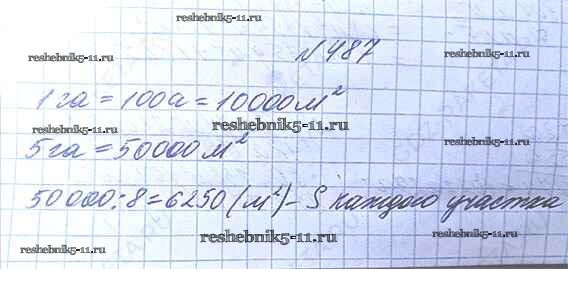 reshebnik5-11.ru
reshebnik5-11.ru
N 487
reshebnik5-11.ru
1 га = 100а = 10000м²
reshebnik5-11.ru
reshebnik5-11.ru
5 га = 50000м²
reshebnik5-11.ru
50 000:8=6250(м²)- S каждого участка
reshebnik5-11.ru
reshebnik5-11.ru
reshebnik5-11.ru